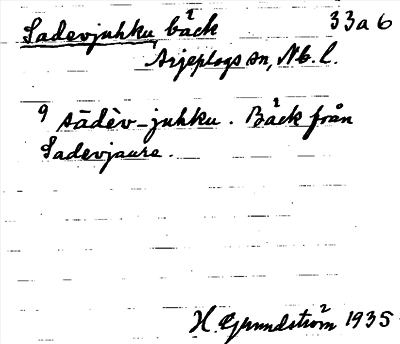 Sadevjuhku, bäck 33a6
Arjeplogs sn, Nb. l.
9 sādèv-juhku. Bäck från
Sadevjaure.
H. Grundström 1935